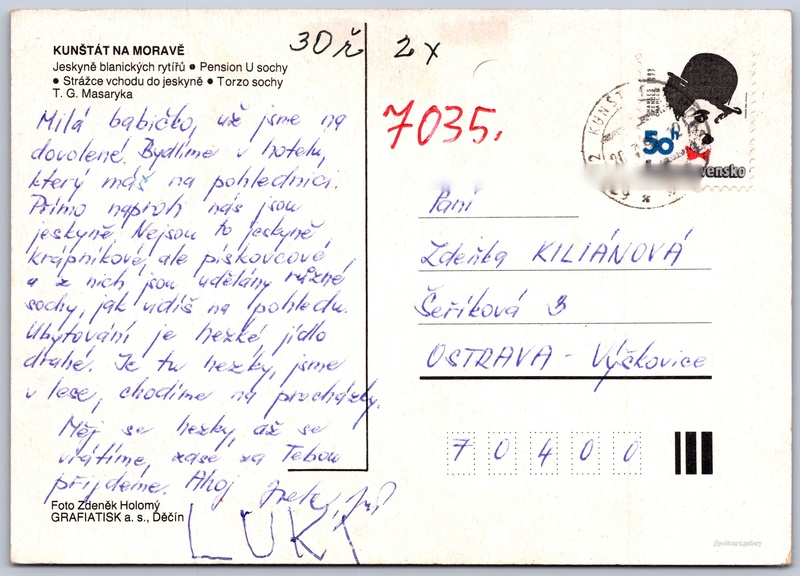 KUNŠTÁT NA MORAVĚ
Jeskyně blanických rytířů ● Pension U sochy
● Strážce vchodu do jeskyně ● Torzo sochy
T. G. Masaryka
30 ř 2x
7035,
Milá babičko, už jsme na
dovolené. Bydlíme v hotelu,
který máš na pohlednici.
Přímo naproti nás jsou
jeskyně. Nejsou to jeskyně
krápníkové, ale pískovcové,
a z nich jsou udělány různé
sochy, jak vidíš na pohledu.
Ubytování je hezké, jídlo
drahé. Je tu hezky, jsme
v lese, chodíme na procházky.
Měj se hezky, až se
vrátíme, zase za Tebou
přijdeme. Ahoj
LUKI
Foto Zdeněk Holomý
GRAFIATISK a. s., Děčín
KUNŠT
50h
vensko
Paní
Zdeňka KILIÁNOVÁ
Šeříková 3
OSTRAVA - Výškovice
7 0 4 0 0